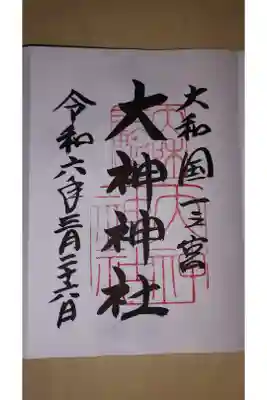 大和国一之宮
大神神社
令和六年三月二十六日